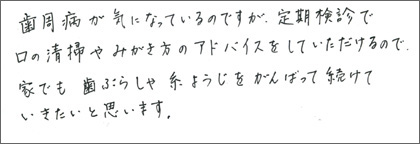 歯周病が気になっているのですが、定期検診で
口の清掃やみがき方のアドバイスをしていただけるので、
家でも歯ぶらしや糸ようじをがんばって続けて
いきたいと思います。